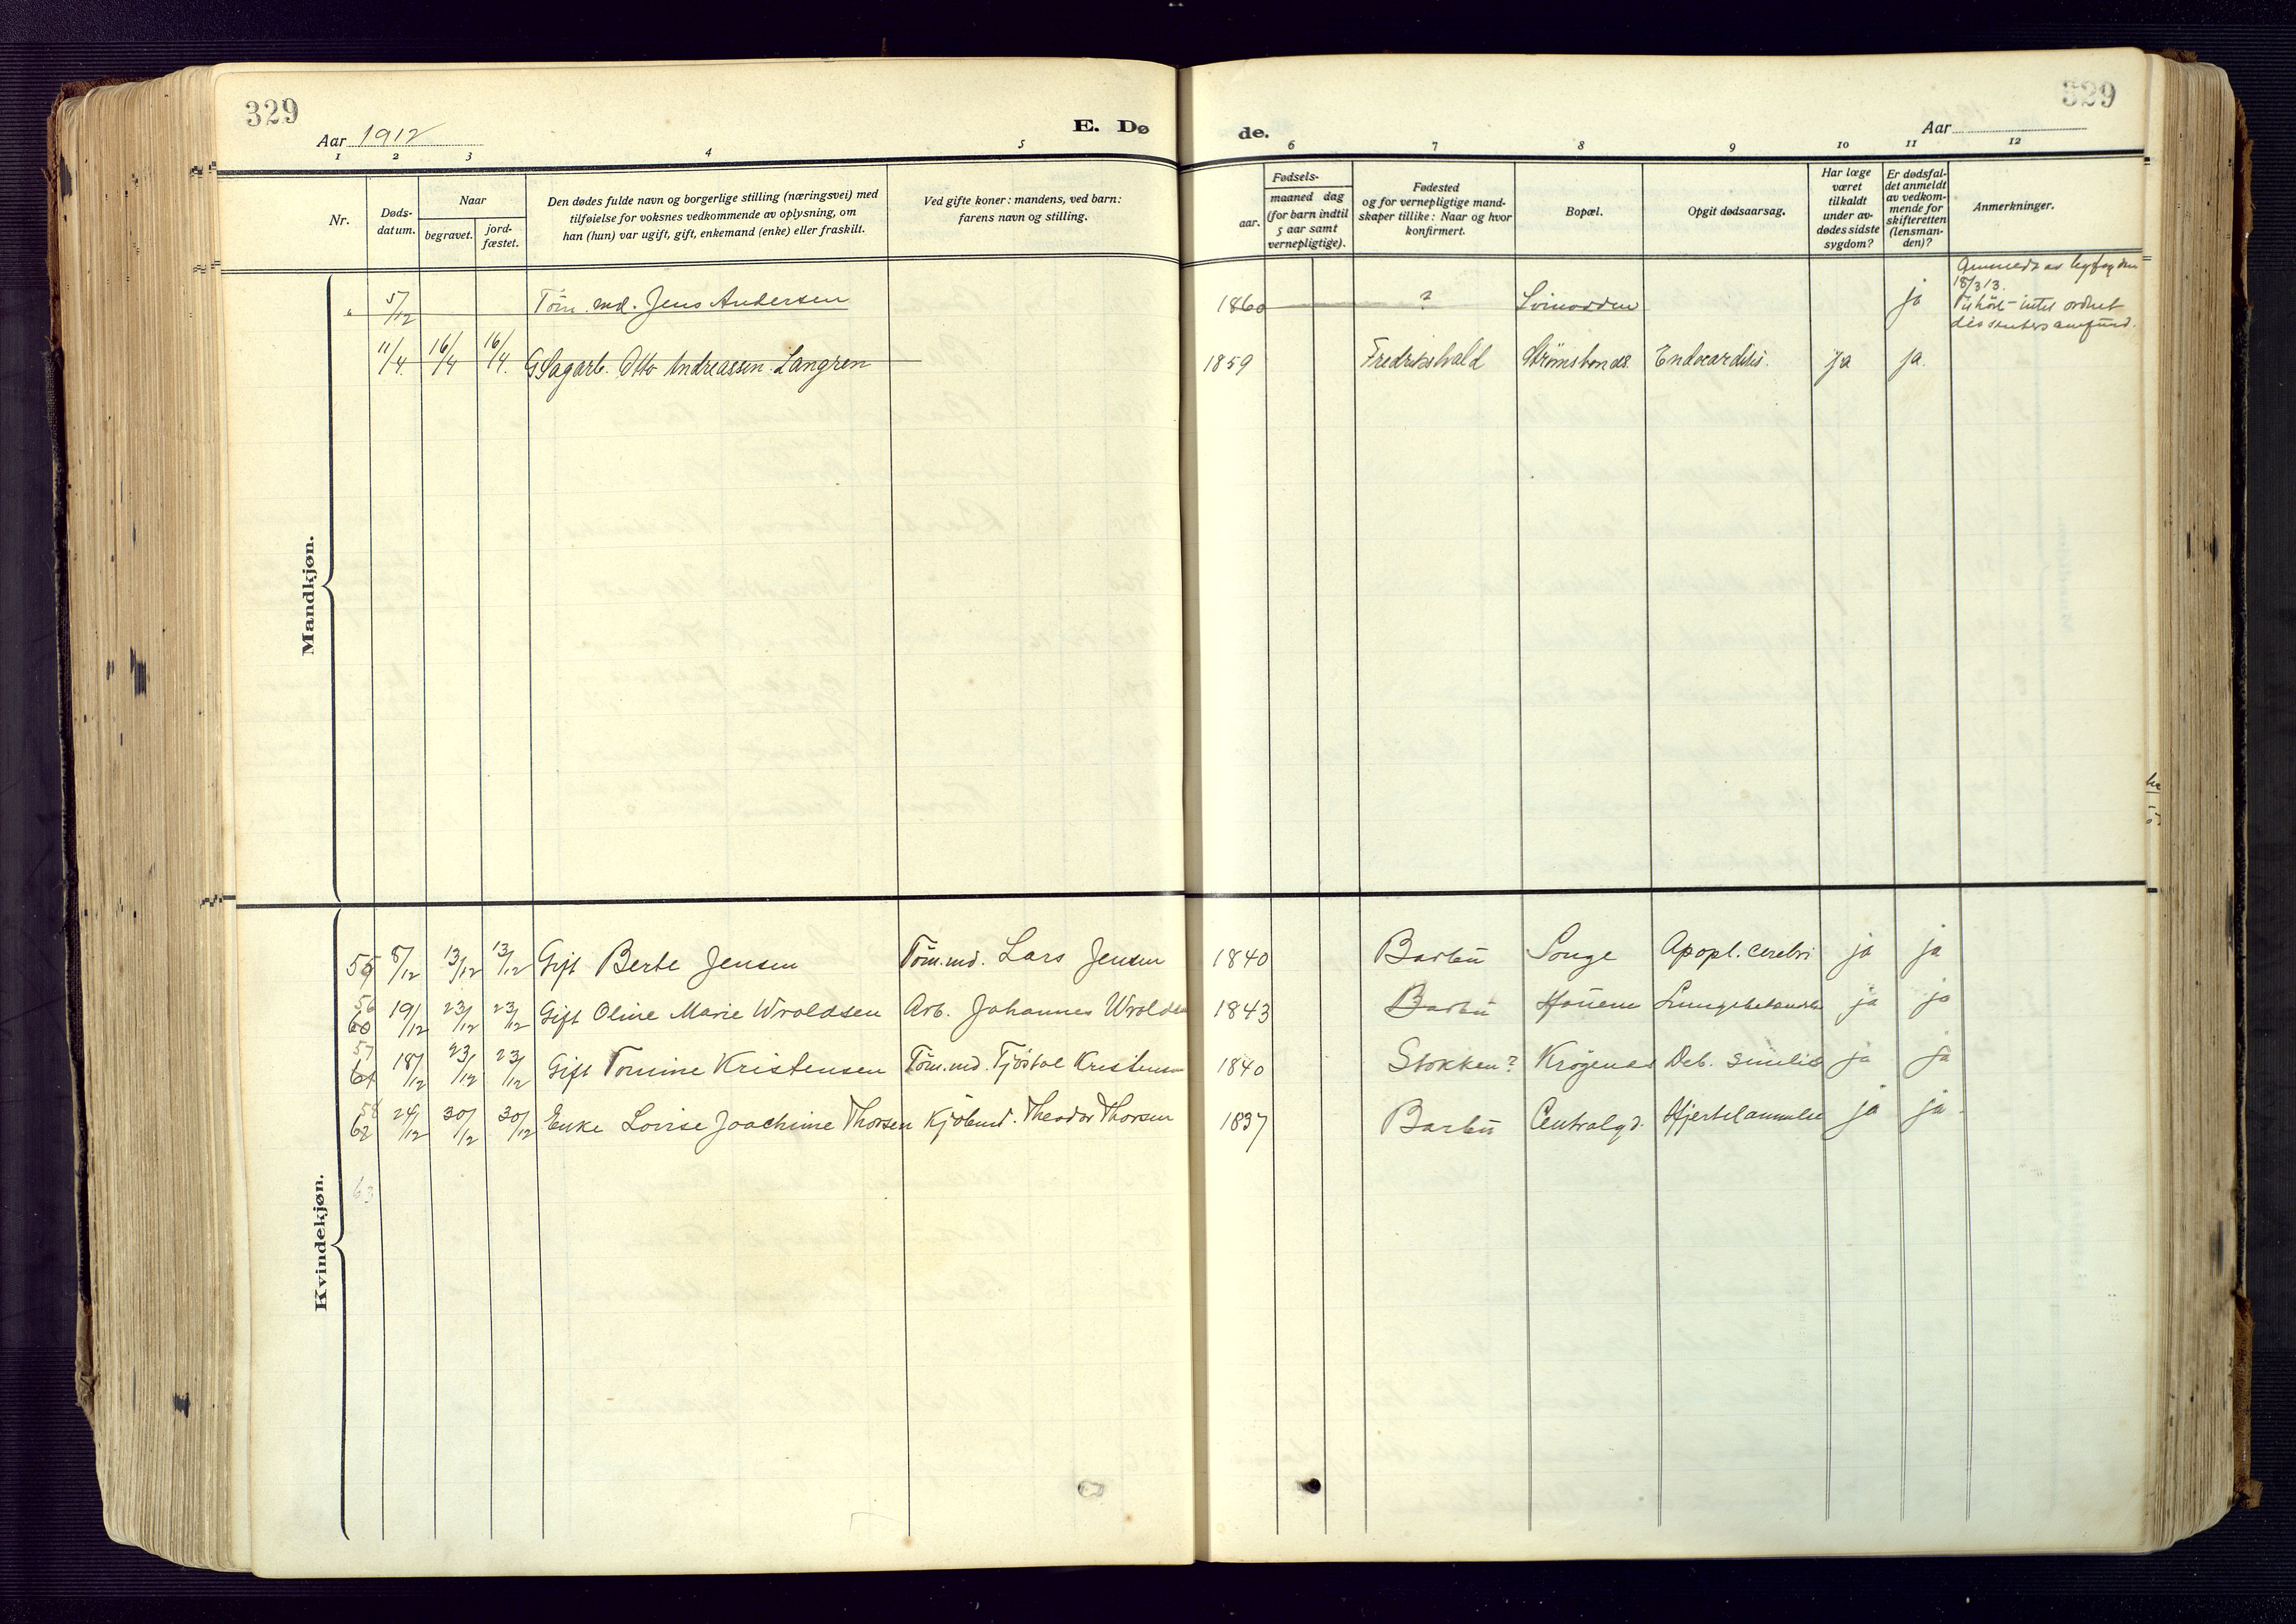 329
329
Aar 1912
E. Dø
de.
Aar
1 2 3 4 5 6 7 8 9 10 11 12
Nr.
Døds-
datum.
Naar
begravet.
jord-
fæstet.
Den dødes fulde navn og borgerlige stilling (næringsvei) med
tilføielse for voksnes vedkommende av oplysning, om
han (hun) var ugift, gift, enkemand (enke) eller fraskilt.
Ved gifte koner: mandens, ved barn:
farens navn og stilling.
Fødsels-
aar.
maaned dag
(for barn indtil
5 aar samt
vernepligtige).
Fødested
og for vernepligtige mand-
skaper tillike: Naar og hvor
konfirmert.
Bopæl.
Opgit dødsaarsag.
Har læge
været
tilkaldt
under av-
dødes sidste
sygdom?
Er dødsfal-
det anmeldt
av vedkom-
mende for
skifteretten
(lensman-
den)?
Anmerkninger.
Mandkjøn.
" 5/12 Tøm.md. Jens Andersen 1860 ? Svinodden ja
18/3 13.
intet ordnet
dissentersamfund.
11/4. 16/4 16/4. G Sagarb. Otto Andreassen Langren 1859 Fredrikshald Strømsbonds. Endocarditis. ja ja.
Kvindekjøn.
55 8/12 13/12 13/12 Gift Berte Jensen Tøm.md. Lars Jensen 1840 Barbu Songe Apopl. cerebri ja ja
56
60 19/12 23/12 23/12 Gift Oline Marie Wroldsen Arb. Johannes Wroldsen 1843 Barbu ja ja
57
61 18/12 23/12 23/12 Gift Tomine Kristensen Tøm.md. Tjøstol Kristensen 1840 Stokken? Krøgenes Deb. senilis ja ja
58
62 24/12 30/12 30/12 Enke Lovise Joachime Thorsen Kjøbmd. Theodor Thorsen 1837 Barbu Centralgd. Hjertelammelse ja ja.
63